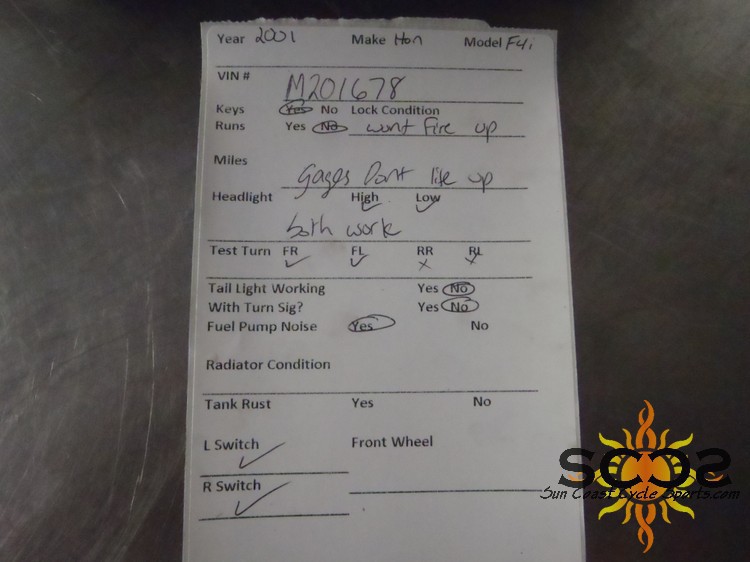 Year 2001 Make Hon Model F4i
VIN # M201678
Keys Yes No Lock Condition
Runs Yes No wont fire up
Miles Gages Dont lite up
Headlight High Low
both work
Test Turn FR FL RR RL
✓ ✓ x x
Tail Light Working Yes No
With Turn Sig? Yes No
Fuel Pump Noise Yes No
Radiator Condition
Tank Rust Yes No
L Switch ✓ Front Wheel
R Switch ✓
SCCS
Sun Coast Cycle Sports.com